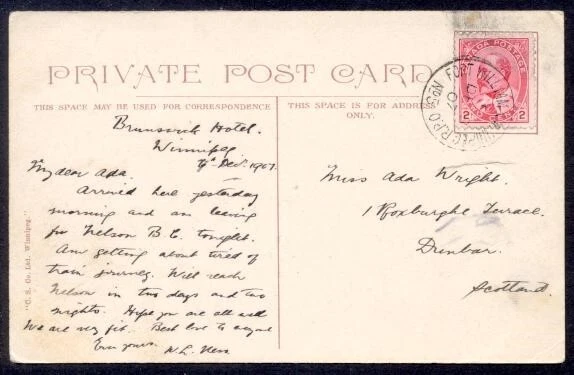 PRIVATE POST CARD
THIS SPACE MAY BE USED FOR CORRESPONDENCE
THIS SPACE IS FOR ADDRESS
ONLY.
CANADA POSTAGE
2 2
TWO CENTS
FORT WILLIAM &
R.P.O
Brunswick Hotel.
Winnipeg
4th Dec. 1907.
My dear Ada.
Arrived here yesterday
morning and am leaving
for Nelson B.C. tonight.
Am getting about tired of
train journey. Will reach
Nelson in two days and two
nights. Hope you are all well
We are very fit. Best love to
Ever yours.
Miss Ada Wright.
1 Roxburghe Terrace.
Dunbar.
Scotland.
"C. S. Co. Ltd. Winnipeg."